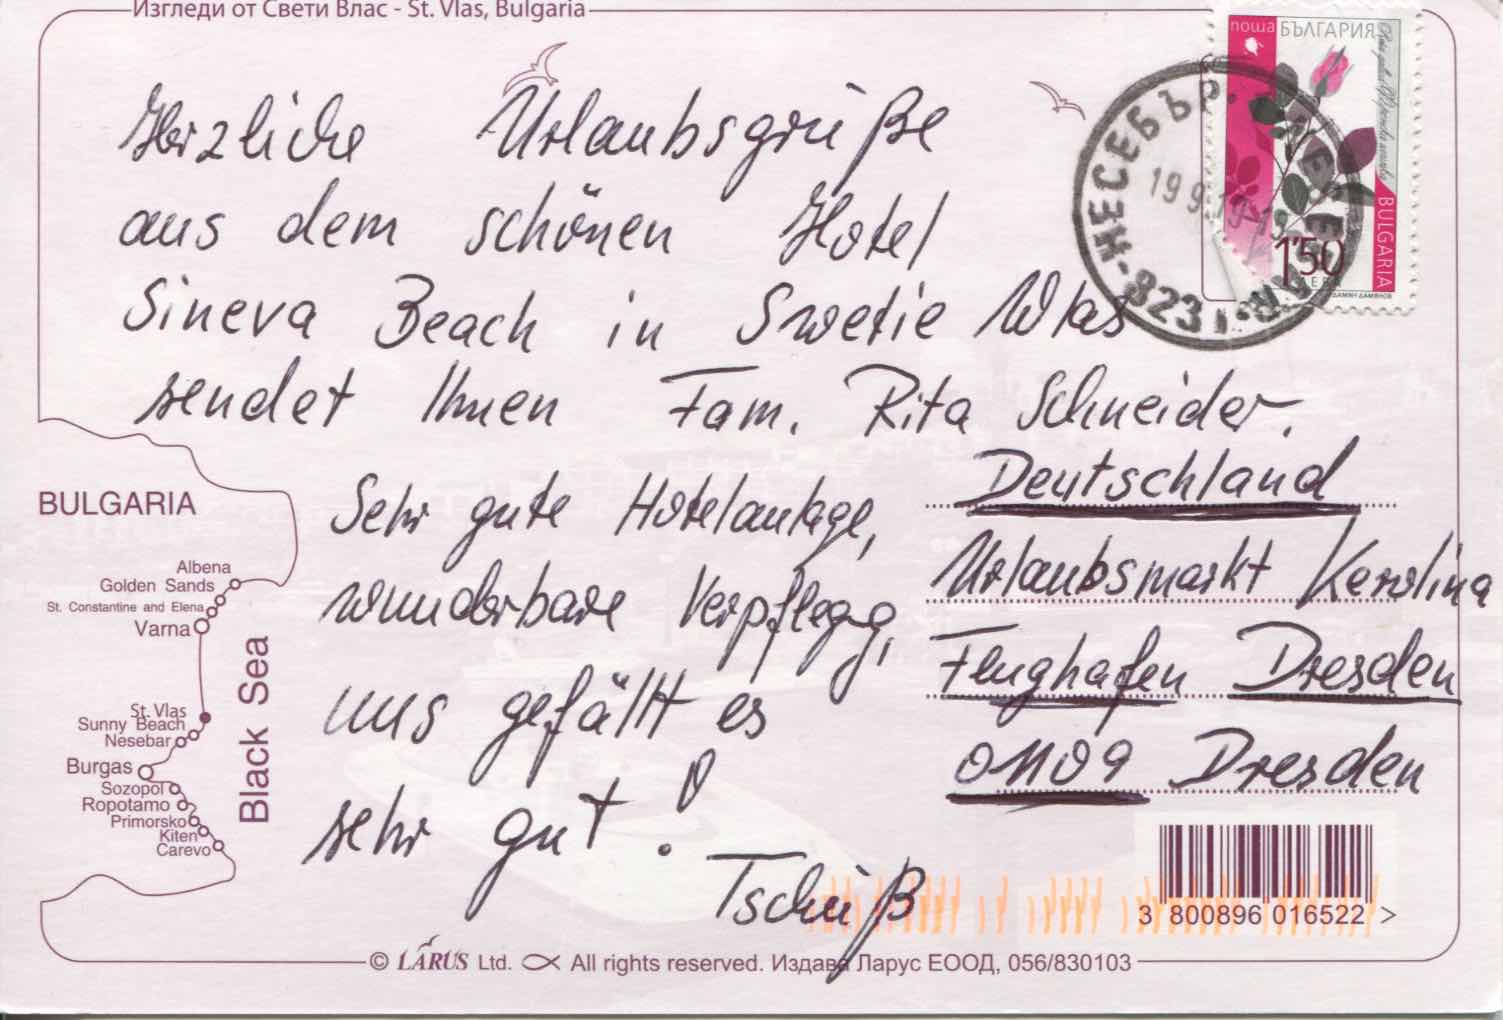 Изгледи от Свети Влас - St. Vlas, Bulgaria
поща БЪЛГАРИЯ
BULGARIA
1'50
ЛЕВА
НЕСЕБЪР
19 9
8231
Herzliche Urlaubsgrüße
aus dem schönen Hotel
Sineva Beach in Swetie Wlas
sendet Ihnen Fam. Rita Schneider.
Sehr gute Hotelanlage,
wunderbare Verpflegg,
uns gefällt es
sehr gut!
Tschüß
Deutschland
Urlaubsmarkt Karolina
Flughafen Dresden
01109 Dresden
BULGARIA
Albena
Golden Sands
St. Constantine and Elena
Varna
Black Sea
St. Vlas
Sunny Beach
Nesebar
Burgas
Sozopol
Ropotamo
Primorsko
Kiten
Carevo
3 800896 016522 >
© LARUS Ltd. All rights reserved. Издава Ларус ЕООД, 056/830103